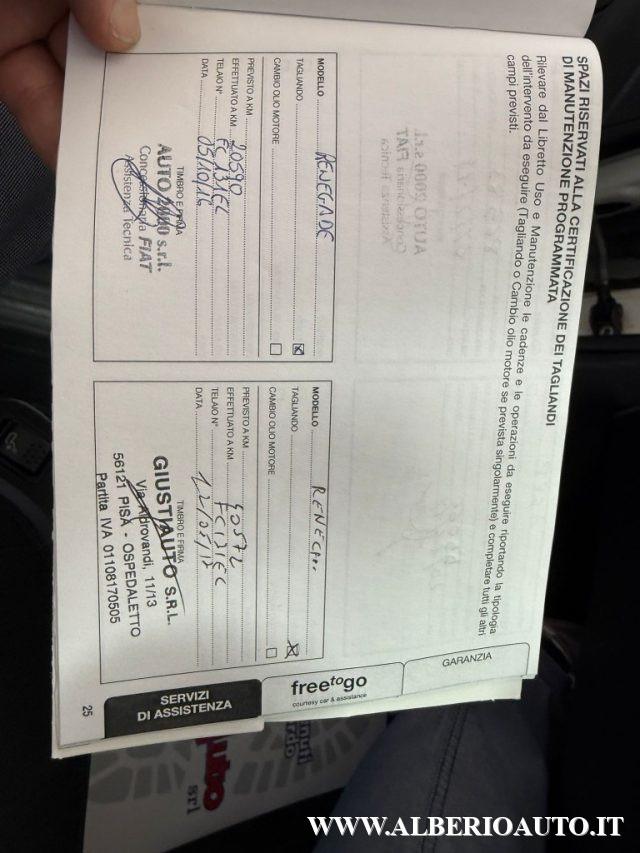 SPAZI RISERVATI ALLA CERTIFICAZIONE DEI TAGLIANDI
DI MANUTENZIONE PROGRAMMATA
Rilevare dal Libretto Uso e Manutenzione le cadenze e le operazioni da eseguire riportando la tipologia
dell'intervento da eseguire (Tagliando o Cambio olio motore se prevista singolarmente) e completare tutti gli altri
campi previsti.
MODELLO RENEGADE
TAGLIANDO
CAMBIO OLIO MOTORE
PREVISTO A KM
EFFETTUATO A KM 20590
TELAIO N° FC131EC
DATA 05/10/16
TIMBRO E FIRMA
AUTO 2000 s.r.l.
Concessionaria FIAT
Assistenza Tecnica
MODELLO
TAGLIANDO
CAMBIO OLIO MOTORE
PREVISTO A KM
EFFETTUATO A KM 40572
TELAIO N° FC131EC
DATA
TIMBRO E FIRMA
GIUSTIAUTO S.R.L.
Via Aldrovandi, 11/13
56121 PISA - OSPEDALETTO
Partita IVA 01108170505
GARANZIA
freetogo
courtesy car & assistance
SERVIZI
DI ASSISTENZA
25
srl
WWW.ALBERIOAUTO.IT